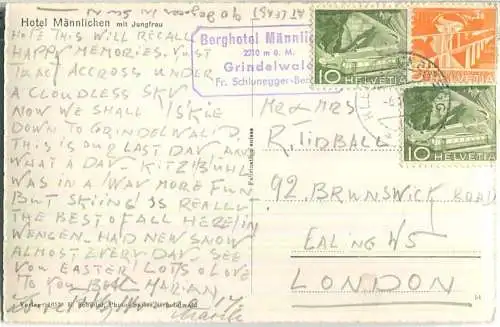 Hotel Männlichen mit Jungfrau
HOPE THIS WILL RECALL
HAPPY MEMORIES. JUST
ACCROSS UNDER
A CLOUDLESS SKY
NOW WE SHALL SKIE
DOWN TO GRINDELWALD
THIS IS OUR LAST DAY AND
WHAT A DAY - KITZBUHL
WAS IN A WAY MORE FUN
BUT SKIING IS REALLY
THE BEST OF ALL HERE IN
WENGEN. HAD NEW SNOW
ALMOST EVERY DAY - SEE
YOU EASTER! LOTS O LOVE
TO YOU BOTH MARIAN
AT LEAST
90 degrees in sun
Berghotel Männlic
2210 m ü. M.
Grindelwald
Fr. Schlunegger-
10 HELVETIA
HELVETIA
10 HELVETIA
MR & MRS
R. TIDBALL
92, BRUNSWICK ROAD
EALING W5
LONDON